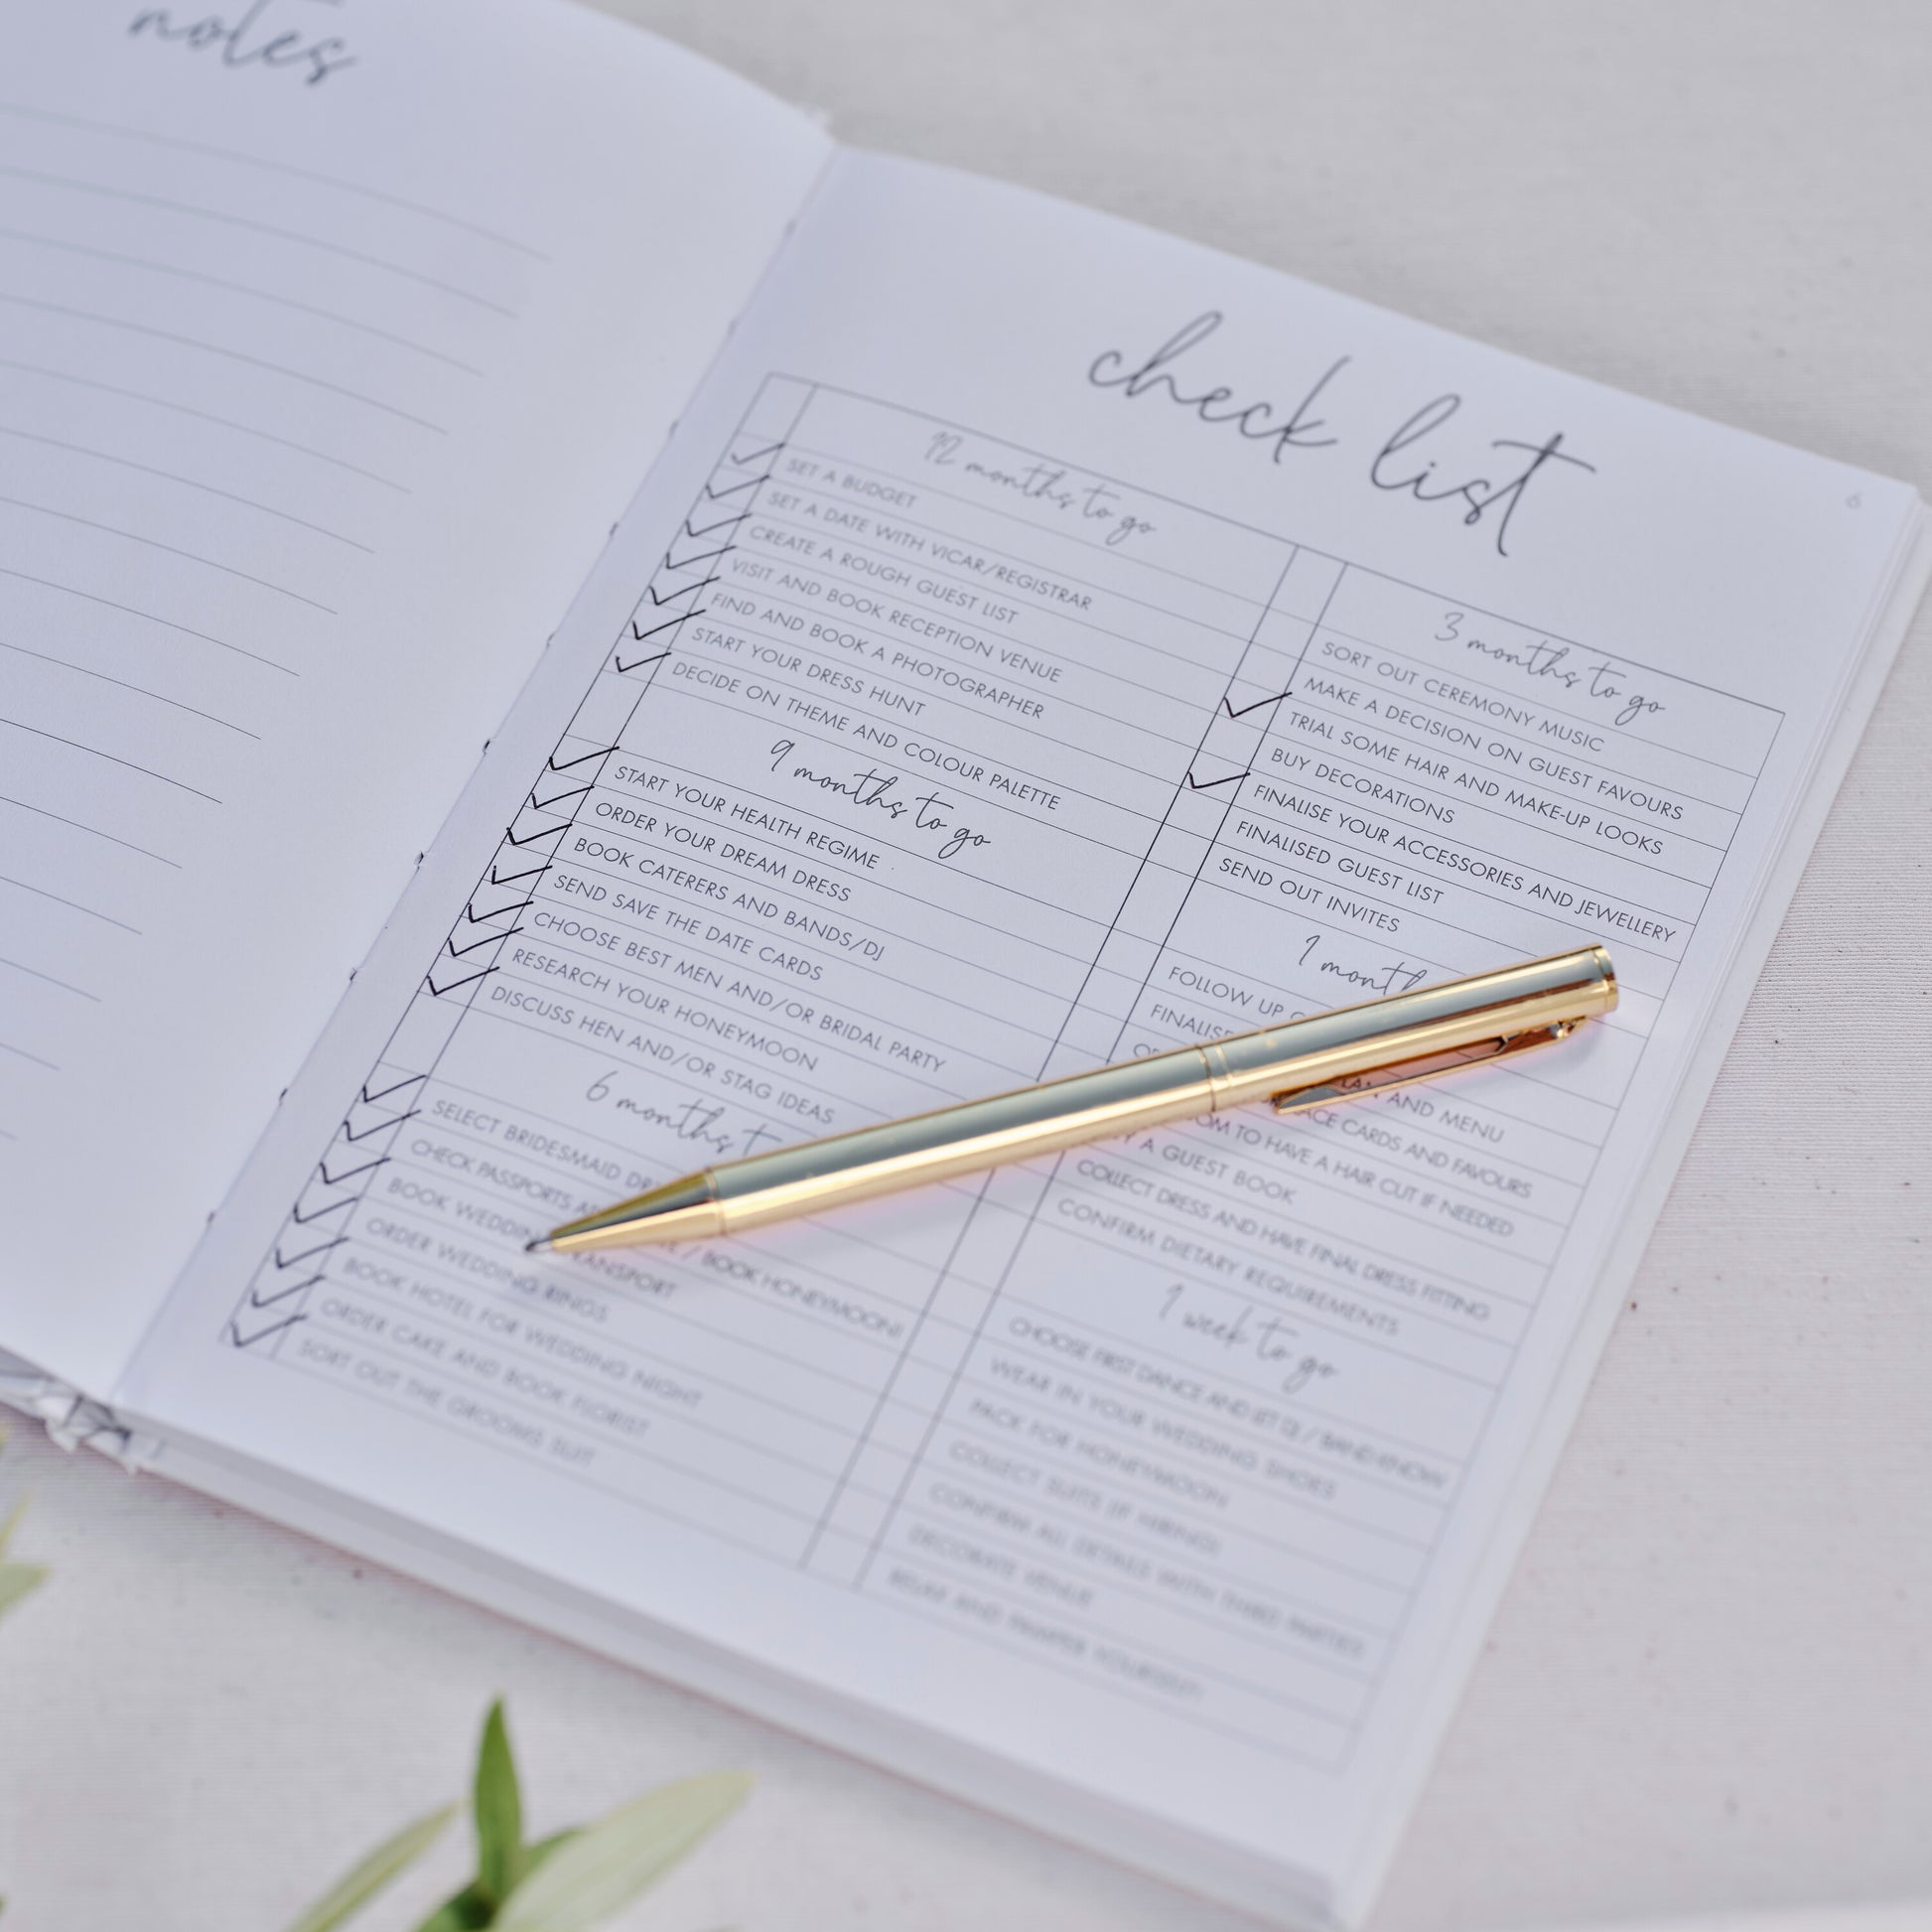 notes
check list
6
12 months to go
SET A BUDGET
SET A DATE WITH VICAR/REGISTRAR
CREATE A ROUGH GUEST LIST
VISIT AND BOOK RECEPTION VENUE
FIND AND BOOK A PHOTOGRAPHER
START YOUR DRESS HUNT
DECIDE ON THEME AND COLOUR PALETTE
9 months to go
START YOUR HEALTH REGIME
ORDER YOUR DREAM DRESS
BOOK CATERERS AND BANDS/DJ
SEND SAVE THE DATE CARDS
CHOOSE BEST MEN AND/OR BRIDAL PARTY
RESEARCH YOUR HONEYMOON
DISCUSS HEN AND/OR STAG IDEAS
6 months
SELECT BRIDESMAID
CHECK PASSPORTS / BOOK HONEYMOON!
BOOK WEDDING TRANSPORT
ORDER WEDDING RINGS
BOOK HOTEL FOR WEDDING NIGHT
ORDER CAKE AND BOOK FLORIST
SORT OUT THE GROOMS SUIT
3 months to go
SORT OUT CEREMONY MUSIC
MAKE A DECISION ON GUEST FAVOURS
TRIAL SOME HAIR AND MAKE-UP LOOKS
BUY DECORATIONS
FINALISE YOUR ACCESSORIES AND JEWELLERY
FINALISED GUEST LIST
SEND OUT INVITES
1 month
FOLLOW UP
FINALISE AND MENU
CARDS AND FAVOURS
TO HAVE A HAIR CUT IF NEEDED
A GUEST BOOK
COLLECT DRESS AND HAVE FINAL DRESS FITTING
CONFIRM DIETARY REQUIREMENTS
1 week to go
CHOOSE FIRST DANCE AND LET DJ / BAND KNOW
WEAR IN YOUR WEDDING SHOES
PACK FOR HONEYMOON
COLLECT SUITS IF HIRING
CONFIRM ALL DETAILS WITH THIRD PARTIES
DECORATE VENUE
RELAX AND PAMPER YOURSELF!